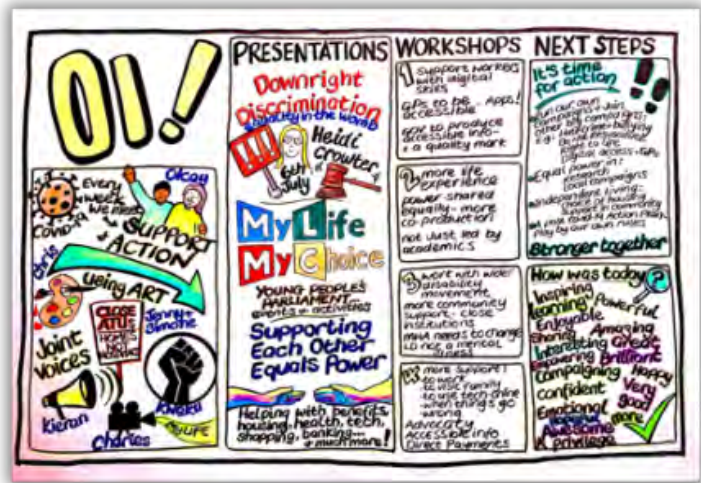 OI!!
Every
week
we meet
Covid-19
Olcay
SUPPORT
+ ACTION
Chris
using ART
CLOSE
ATUs
HOMES
NOT
HOSPITALS
Jenny +
Simone
Joint
Voices
Kieran
Charles
Kwaku
My LIFE
PRESENTATIONS
Downright
Discrimination
equality in the womb
!!!
Heidi
Crowter
6th
July
My Life
My Choice
YOUNG PEOPLE'S
PARLIAMENT
events + activities
Supporting
Each Other
Equals Power
Helping with benefits,
housing, health, tech,
shopping, banking...
+ much more!
WORKSHOPS
1 support workers
with digital
skills
GPs to be - Apps!
accessible
gov to produce
accessible info-
+ a quality mark
2 more life
experience
power shared
equally - more
co-production
not just led by
academics
3 work with wider
disability
movement
more community
support - close
institutions
MHA needs to change
LD not a mental
illness
more support!
- to work
- to visit family
- to use tech online
- when things go
wrong
Advocacy
Accessible info
Direct Payments
NEXT STEPS
It's time
for action !!
Run our own
campaigns + Join
other big campaigns:
e.g. Hate crime + bullying
Right to life
Digital access + GPs
Equal power in:
research
local campaigns
Independent living:
choice of housing
support in community
A post Covid-19 Action Plan
Play by our own rules
Stronger together
How was today?
Inspiring
learning Powerful
Enjoyable
Sharing Amazing
Interesting Great
Empowering Brilliant
Campaigning Happy
confident Very
good
Emotional
more
Awesome
A privilege